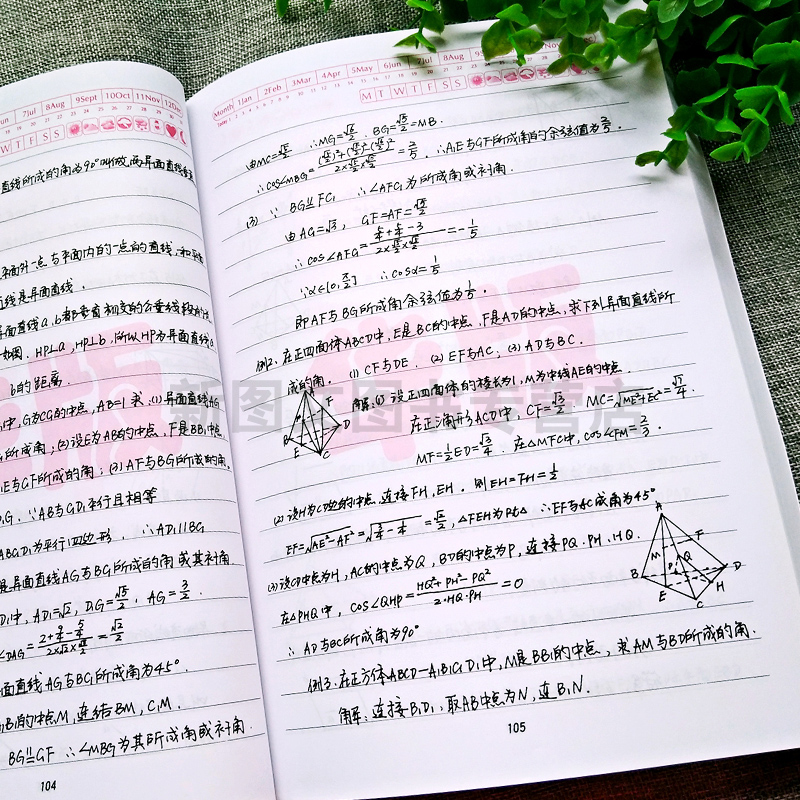 7Jul 8Aug 9Sept 10Oct 11Nov 12Dec
W T F S S
直线所成的角为90°叫做两异面直线垂直
平面外一点与平面内的一点的直线,和平面
直线是异面直线.
异面直线a,b都垂直相交的公垂线段的
如图.HP⊥a,HP⊥b,所以HP为异面直线a
b的距离.
中,G为CG的中点,AB=1求.(1)异面直线AG
所成角;(2)设E为AB的中点,F是BB₁中点.
A₁E与GF所成的角;(3)AF与BG所成的角.
D₁G.∵AB与GD₁平行且相等
ABGD₁为平行四边形. ∴AD₁//BG
是异面直线AG与BG所成角或其补角
D₁中,AD₁=√2,D₁G=√5/2,AG=3/2.
面直线AG与BC₁所成角为45°.
B₁的中点M,连结BM,C₁M.
BG//GF ∴∠MBG为其所成角或补角.
104
Month 1Jan 2Feb 3Mar 4Apr 5May 6Jun 7Jul 8Aug
M T W T F S S
由MC=√5/2 ∴MG=√6/2.BG=√5/2=MB.
∴cos∠MBG=((√5/2)²+(√5/2)²-(√6/2)²)/(2×√5/2×√5/2)=2/5.∴A₁E与GF所成角的余弦值为2/5.
(3) ∵ BG//FC₁ ∴∠AFC₁为所成角或补角.
由AG=√3,GF=AF=√5/2
∴cos∠AFG=(5/4+5/4-3)/(2×√5/2×√5/2)=-1/5
∵α∈[0,π/2] ∴cosα=1/5
即AF与BG所成角余弦值为1/5.
例2.在正四面体ABCD中,E是BC的中点,F是AD的中点,求下列异面直线所
成的角.(1)CF与DE.(2)EF与AC;(3)AD与BC.
解:(1)设正四面体的棱长为1,M为中线AE的中点.
在正三角形ACD中,CF=√3/2 MC=√ME²+EC²=√7/4
MF=1/2ED=√3/4.在△MFC中,cos∠CFM=2/3.
(2)设H为CD边的中点.连接FH,EH.则EH=FH=1/2
EF=√AE²-AF²=√3/4-1/4=√2/2,△FEH为Rt△ ∴EF与AC成角为45°
(3)设CD中点为H,AC的中点为Q,BD的中点为P,连接PQ.PH.HQ.
在△PHQ中,cos∠QHP=(HQ²+PH²-PQ²)/(2·HQ·PH)=0
∴AD与BC所成角为90°
例3.在正方体ABCD-A₁B₁C₁D₁中,M是BB₁的中点,求AM与BD所成的角.
解:连接B₁D₁,取AB中点为N,连B₁N.
105
A
F
B
D
E
C
A
M
F
Q
P
B
D
E
H
C
新图文图书专营店